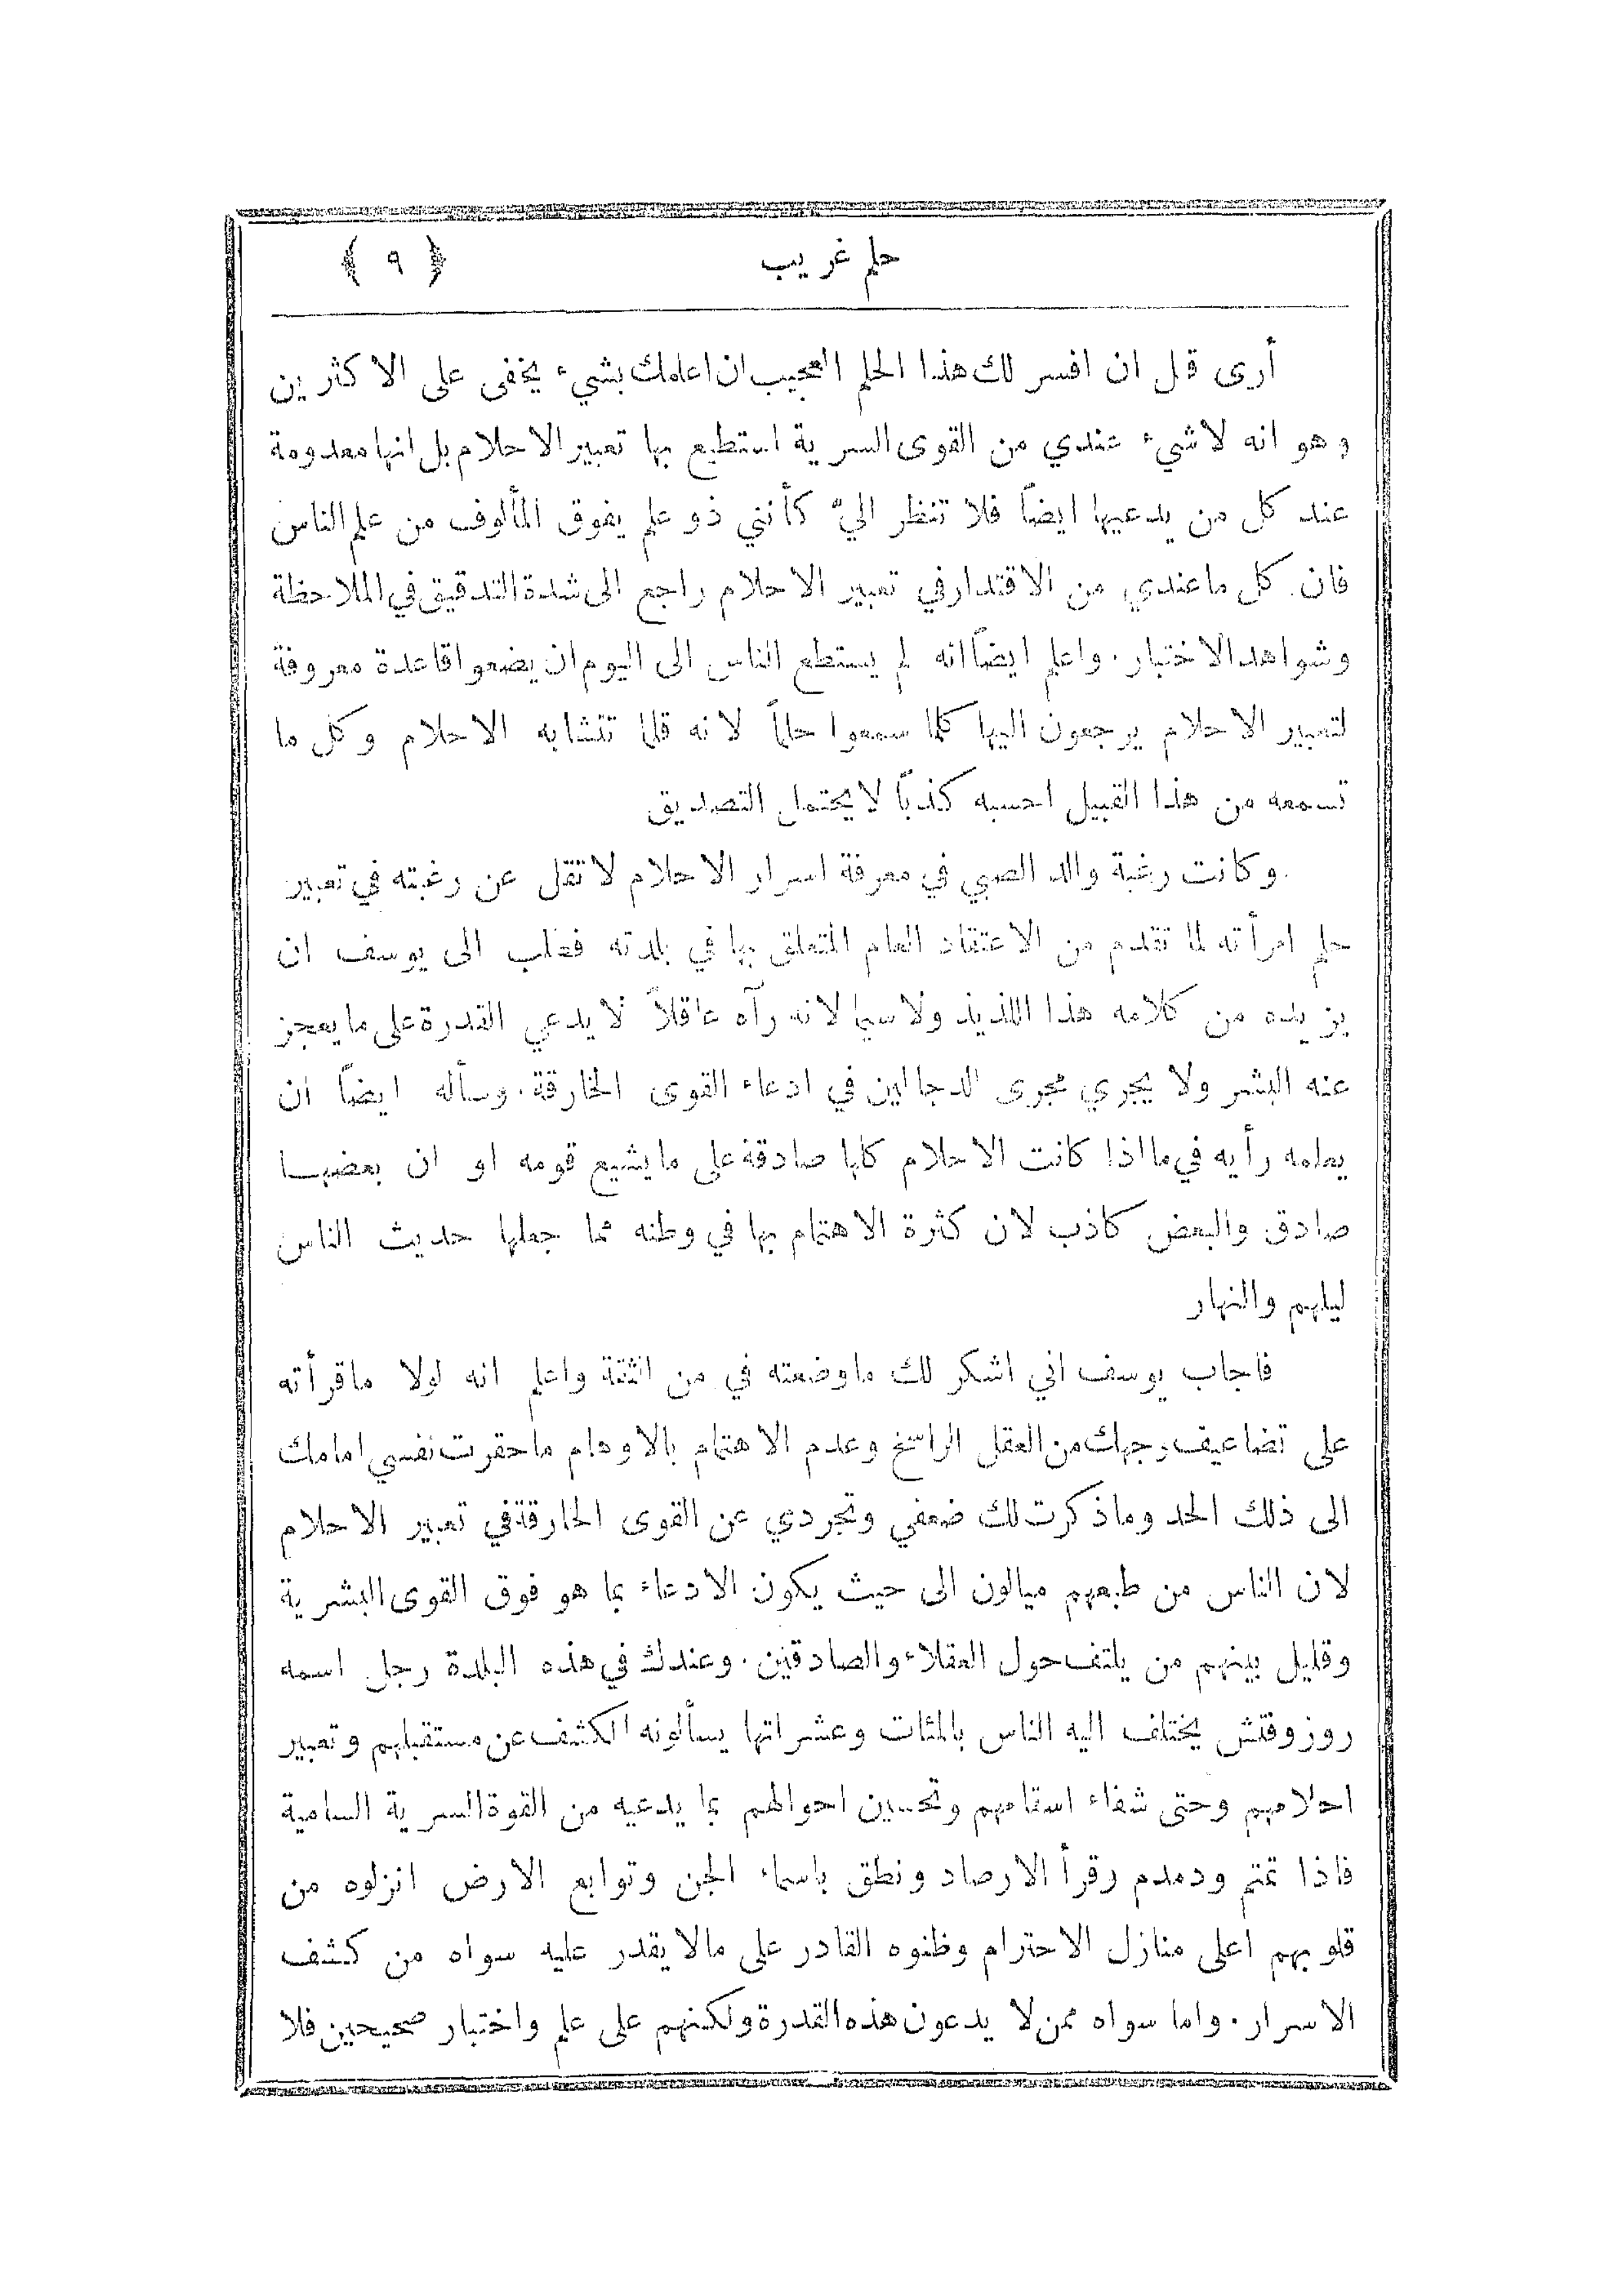 حلم غريب ﴿ ٩ ﴾
أرى قبل ان افسر لك هذا الحلم العجيب ان اعلمك بشيء يخفى على الاكثرين
وهو انه لا شيء عندي من القوى السرية استطيع بها تعبير الاحلام بل انها معدومة
عند كل من يدعيها ايضاً فلا تنظر اليّ كأنني ذو علم يفوق المألوف من علم الناس
فان كل ما عندي من الاقتدار في تعبير الاحلام راجع الى شدة التدقيق في الملاحظة
وشواهد الاختبار. واعلم ايضاً انه لم يستطع الناس الى اليوم ان يضعوا قاعدة معروفة
لتعبير الاحلام يرجعون اليها كلما سمعوا حلماً لانه قلما تتشابه الاحلام وكل ما
تسمعه من هذا القبيل احسبه كذباً لا يحتمل التصديق
وكانت رغبة والد الصبي في معرفة اسرار الاحلام لا تقل عن رغبته في تعبير
حلم امرأته لما تقدم من الاعتقاد العام المتعلق بها في بلدته فطلب الى يوسف ان
يزيده من كلامه هذا اللذيذ ولا سيما لانه رآه عاقلاً لا يدعي القدرة على ما يعجز
عنه البشر ولا يجري مجرى الدجالين في ادعاء القوى الخارقة. وسأله ايضاً ان
يعلمه رأيه في ما اذا كانت الاحلام كلها صادقة على ما يشيع قومه او ان بعضها
صادق والبعض كاذب لان كثرة الاهتمام بها في وطنه مما جعلها حديث الناس
ليلهم والنهار
فاجاب يوسف اني اشكر لك ما وضعته في من الثقة واعلم انه لولا ما قرأته
على تضاعيف وجهك من العقل الراسخ وعدم الاهتمام بالاوهام ما حقرت نفسي امامك
الى ذلك الحد وما ذكرت لك ضعفي وتجردي عن القوى الخارقة في تعبير الاحلام
لان الناس من طبعهم ميالون الى حيث يكون الادعاء بما هو فوق القوى البشرية
وقليل بينهم من يلتف حول العقلاء والصادقين. وعندك في هذه البلدة رجل اسمه
روزوقتش يختلف اليه الناس بالمئات وعشراتها يسألونه الكشف عن مستقبلهم وتعبير
احلامهم وحتى شفاء اسقامهم وتحسين احوالهم بما يدعيه من القوة السرية السامية
فاذا تمتم ودمدم وقرأ الارصاد ونطق باسماء الجن وتوابع الارض انزلوه من
قلوبهم اعلى منازل الاحترام وظنوه القادر على ما لا يقدر عليه سواه من كشف
الاسرار. واما سواه ممن لا يدعون هذه القدرة ولكنهم على علم واختبار صحيحين فلا